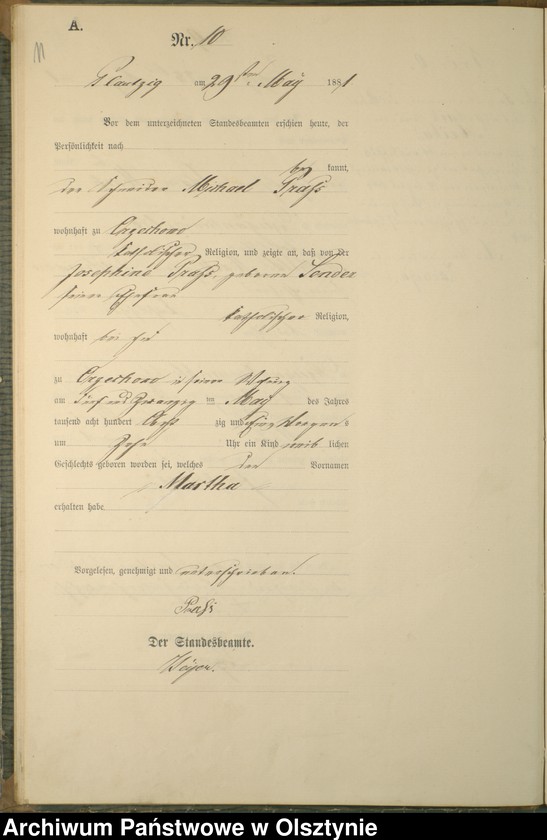 A.
11
Nr. 10
Plautzig am 29ten May 1881
Vor dem unterzeichneten Standesbeamten erschien heute, der
Persönlichkeit nach
be kannt,
der Michael Praß
wohnhaft zu
katholischer Religion, und zeigte an, daß von der
Josephine Praß, geborene
seiner Ehefrau
katholischer Religion,
wohnhaft bei ihm
zu in seiner Wohnung
am fünf und zwanzigten May des Jahres
tausend acht hundert acht zig und eins
um Uhr ein Kind weib lichen
Geschlechts geboren worden sei, welches den Vornamen
Martha
erhalten habe
Vorgelesen, genehmigt und unterschrieben.
Praß
Der Standesbeamte.
Archiwum Państwowe w Olsztynie